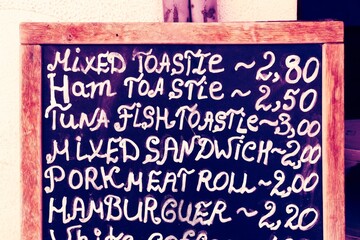 MIXED TOASTIE ~ 2,80
Ham TOASTIE ~ 2,50
TUNA FISH TOASTIE ~ 3,00
MIXED SANDWICH ~ 2,00
PORK MEAT ROLL ~ 2,00
HAMBURGUER ~ 2,20
White coffee